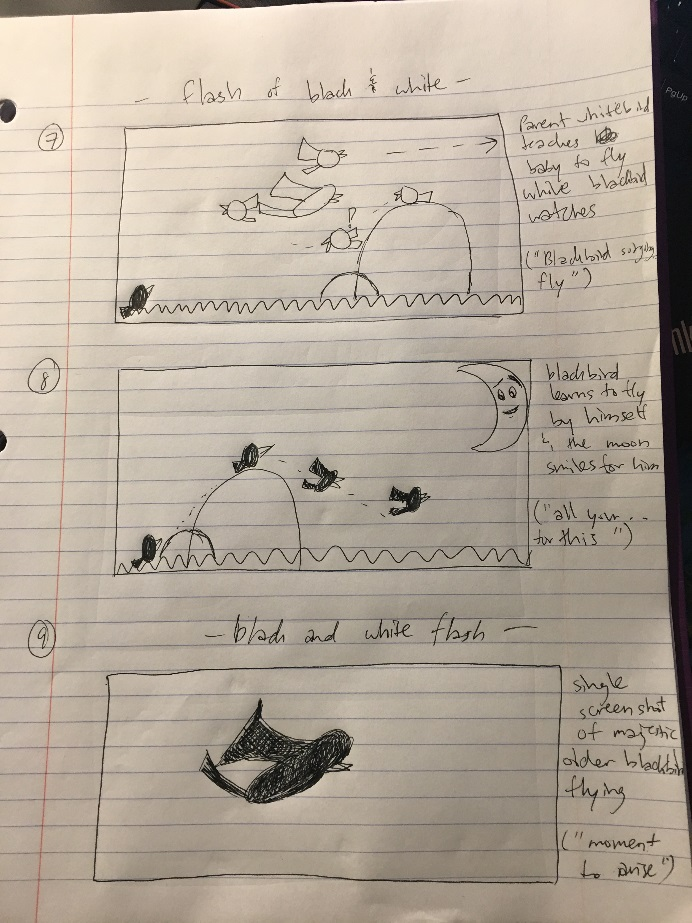 - flash of black & white -
7
Parent whitebird
teaches
baby to fly
while blackbird
watches
("Blackbird
fly")
8
blackbird
learns to fly
by himself
& the moon
smiles for him
("all your...
for this")
- black and white flash -
9
single
screenshot
of majestic
older blackbird
flying
("moment
to arise")
PgUp